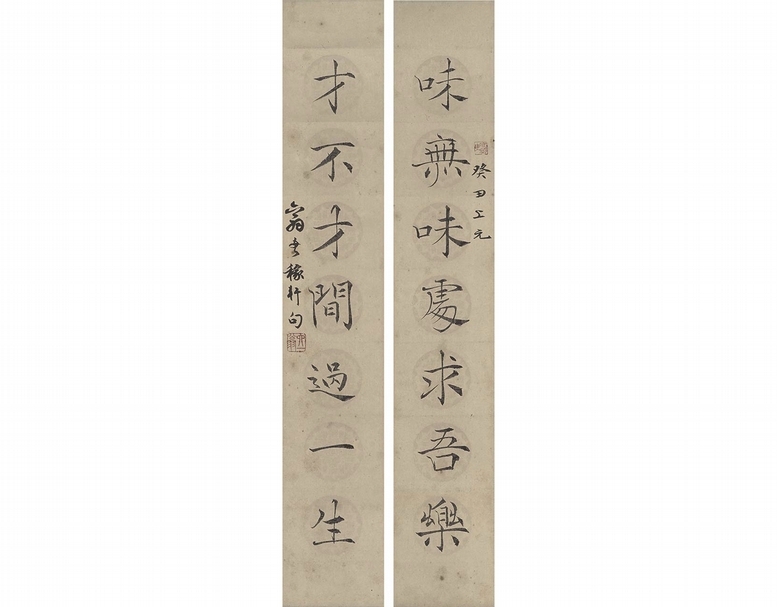 癸丑上元
味無味處求吾樂
才不才間過一生
翁書稼軒句